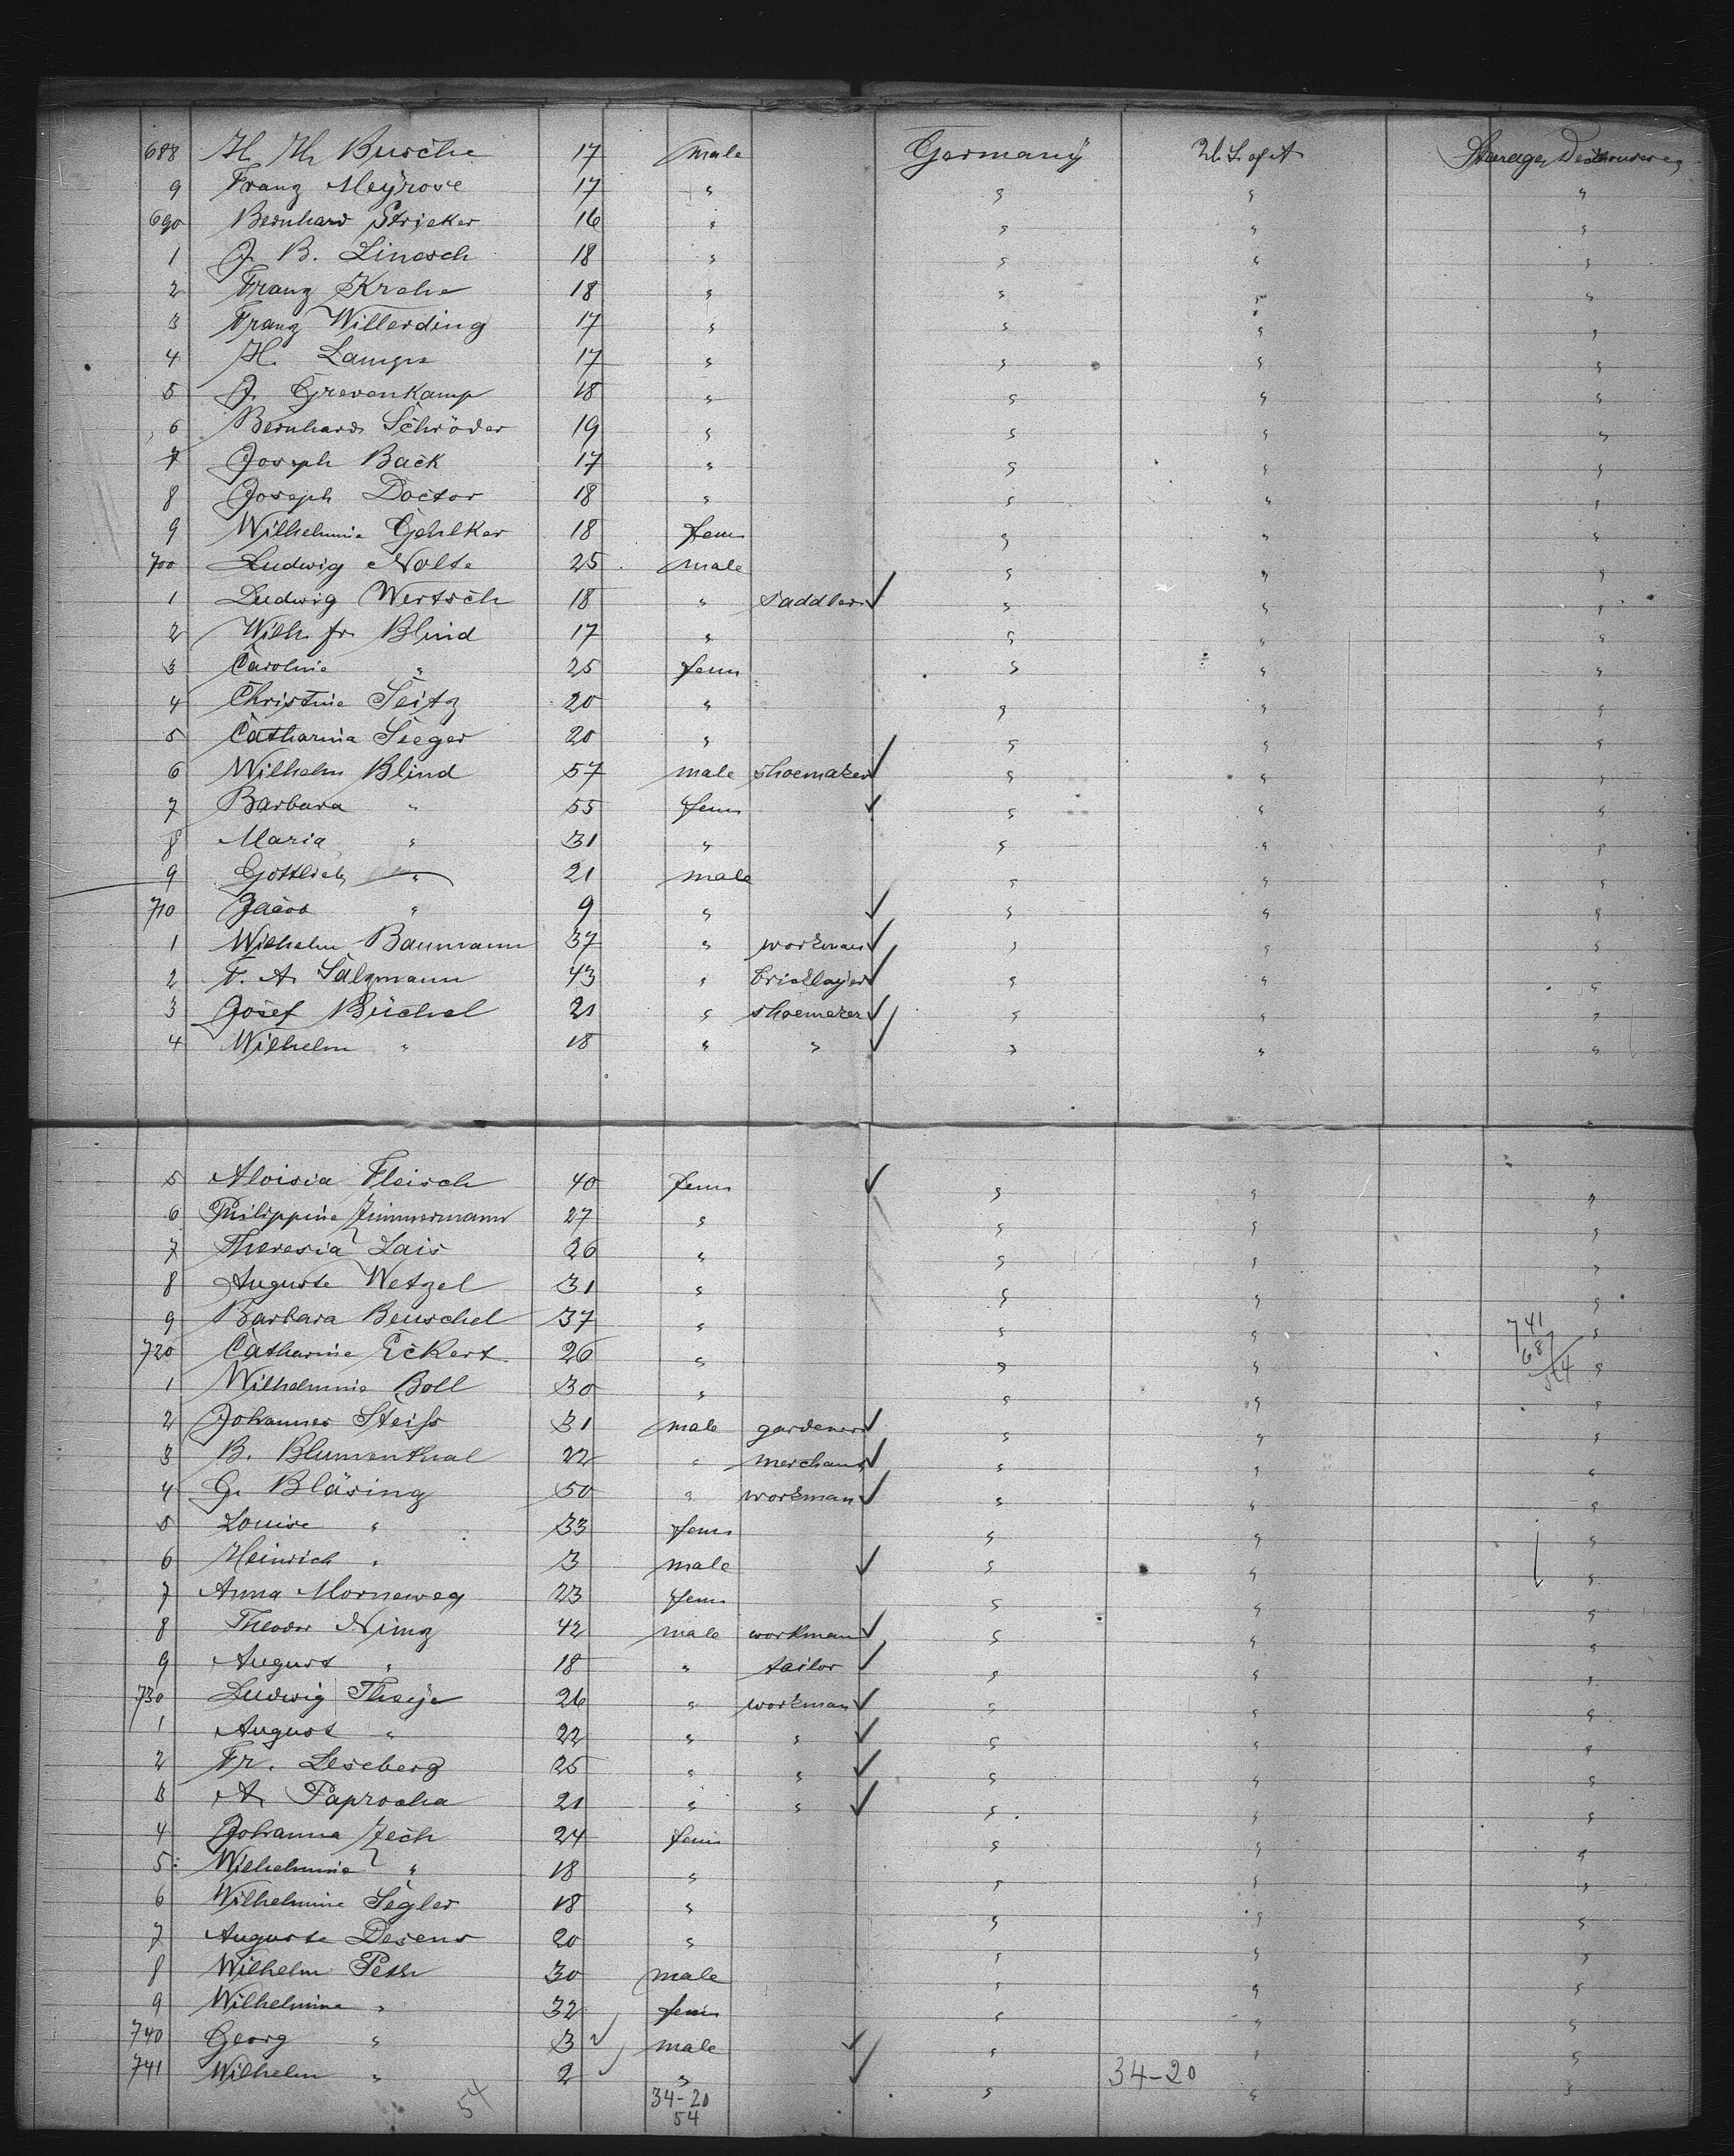 688 H. H. Busche 17 male Germany U. S. of A. Steerage
9 Franz Meyrose 17 " " " "
690 Bernhard Stricker 16 " " " "
1 J. B. Linesch 18 " " " "
2 Franz Krehe 18 " " " "
3 Franz Willerding 17 " " " "
4 H. Lampe 17 " " " "
5 J. Grevenkamp 18 " " " "
6 Bernhard Schröder 19 " " " "
7 Joseph Back 17 " " " "
8 Joseph Doctor 18 " " " "
9 Wilhelmine Gehlker 18 fem " " "
700 Ludwig Nolte 25 male " " "
1 Ludwig Wertsch 18 " saddler ✓ " " "
2 Wilh. fr. Blind 17 " " " "
3 Caroline " 25 fem " " "
4 Christine Seitz 20 " " " "
5 Catharina Seeger 20 " " " "
6 Wilhelm Blind 57 male shoemaker ✓ " " "
7 Barbara " 55 fem ✓ " " "
8 Maria " 31 " " " "
9 Gottlieb " 21 male " " "
710 Jacob " 9 " ✓ " " "
1 Wilhelm Baumann 37 " workman ✓ " " "
2 F. A. Salzmann 43 " bricklayer ✓ " " "
3 Josef Büchel 21 " shoemaker ✓ " " "
4 Wilhelm " 18 " " ✓ " " "
5 Aloisia Fleisch 40 fem ✓ " " "
6 Philippine Zimmermann 27 " " " "
7 Theresia Lais 26 " " " "
8 Auguste Wetzel 31 " " " "
9 Barbara Beuschel 37 " " " "
741
687
54
720 Catharine Eckert 26 " " " "
1 Wilhelmine Boll 30 " " " "
2 Johannes Steiss 31 male gardener ✓ " " "
3 B. Blumenthal 22 " merchant ✓ " " "
4 G. Bläsing 50 " workman ✓ " " "
5 Louise " 33 fem " " "
6 Heinrich " 3 male ✓ " " "
7 Anna Morneweg 23 fem " " "
8 Theodor Nimz 42 male workman ✓ " " "
9 August " 18 " tailor ✓ " " "
730 Ludwig Theye 26 " workman ✓ " " "
1 August " 22 " " ✓ " " "
2 Fr. Leseberg 25 " " ✓ " " "
3 A. Paprocha 21 " " ✓ " " "
4 Johanna Zech 24 fem " " "
5 Wilhelmine " 18 " " " "
6 Wilhelmine Segler 18 " " " "
7 Auguste Desens 20 " " " "
8 Wilhelm Peth 30 male " " "
9 Wilhelmine " 32 fem " " "
740 Georg " 3 ✓ male ✓ " " "
741 Wilhelm " 2 ✓ " ✓ " " "
34-20
54
34-20
54